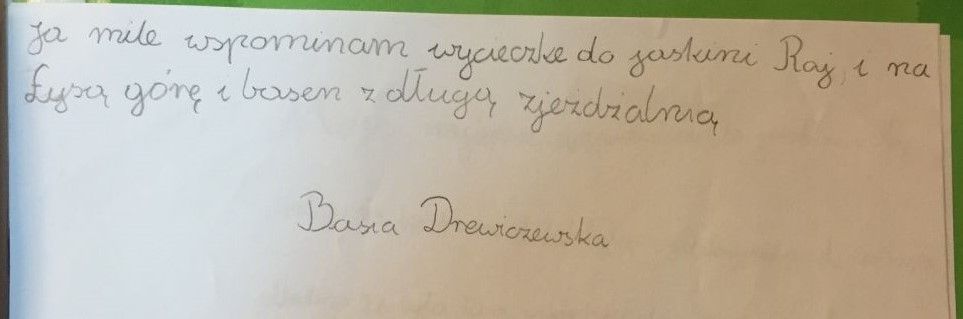 Ja mile wspominam wycieczkę do jaskini Raj, i na
Łysą górę i basen z długą zjeżdżalnią
Basia Drewiczewska